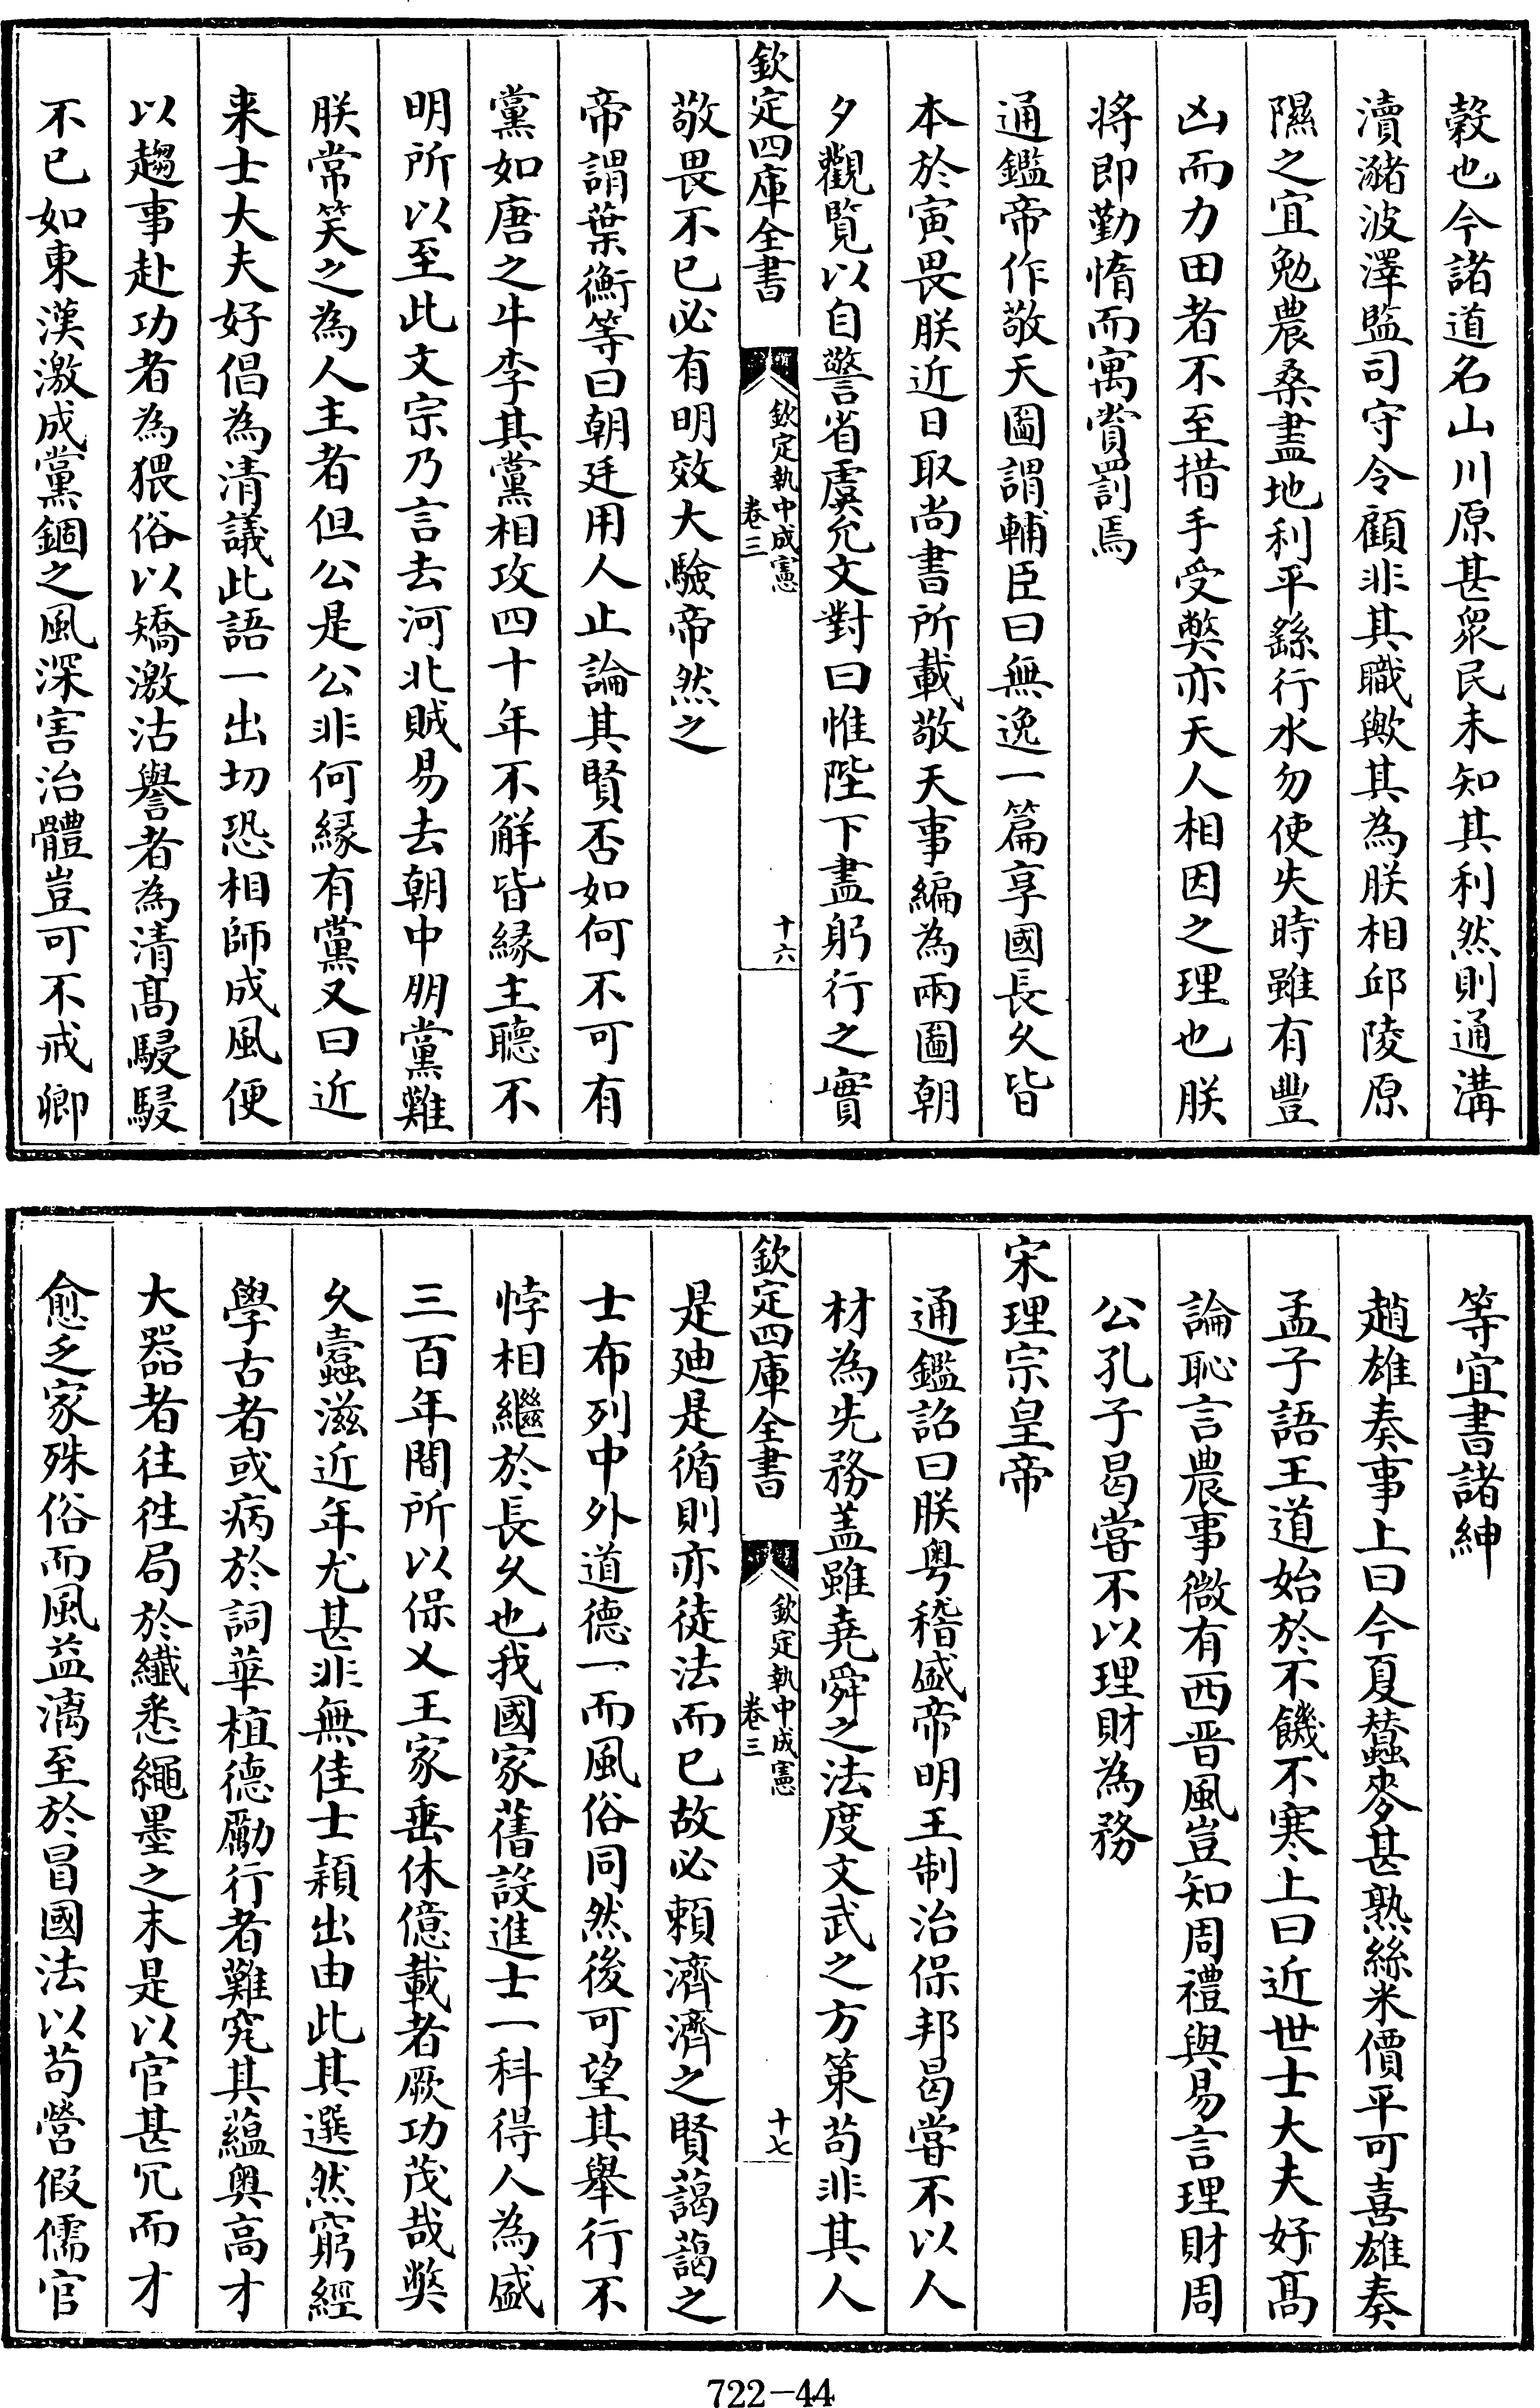 穀也今諸道名山川原甚衆民未知其利然則通溝
瀆瀦波澤監司守令顧非其職歟其為朕相邱陵原
隰之宜勉農桑盡地利平繇行水勿使失時雖有豐
凶而力田者不至措手受弊亦天人相因之理也朕
将即勤惰而寓賞罰焉
通鑑帝作敬天圖謂輔臣曰無逸一篇享國長久皆
本於寅畏朕近日取尚書所載敬天事編為兩圖朝
夕觀覧以自警省虞允文對曰惟陛下盡躬行之實
欽定四庫全書
欽定執中成憲
卷三
十六
敬畏不已必有明效大驗帝然之
帝謂葉衡等曰朝廷用人止論其賢否如何不可有
黨如唐之牛李其黨相攻四十年不解皆縁主聽不
明所以至此文宗乃言去河北賊易去朝中朋黨難
朕常笑之為人主者但公是公非何縁有黨又曰近
来士大夫好倡為清議此語一出切恐相師成風便
以趨事赴功者為猥俗以矯激沽譽者為清髙駸駸
不已如東漢激成黨錮之風深害治體豈可不戒卿
等宜書諸紳
趙雄奏事上曰今夏蠶麥甚熟絲米價平可喜雄奏
孟子語王道始於不饑不寒上曰近世士大夫好髙
論恥言農事微有西晉風豈知周禮與易言理財周
公孔子曷嘗不以理財為務
宋理宗皇帝
通鑑詔曰朕粤稽盛帝明王制治保邦曷嘗不以人
材為先務葢雖堯舜之法度文武之方策苟非其人
欽定四庫全書
欽定執中成憲
卷三
十七
是迪是循則亦徒法而已故必頼濟濟之賢藹藹之
士布列中外道德一而風俗同然後可望其舉行不
悖相繼於長久也我國家舊設進士一科得人為盛
三百年間所以保乂王家垂休億載者厥功茂哉弊
久蠧滋近年尤甚非無佳士頴出由此其選然窮經
學古者或病於詞華植德勵行者難究其蘊奥高才
大器者往徃局於纎悉繩墨之末是以官甚冗而才
愈乏家殊俗而風益漓至於冒國法以苟營假儒官
722-44